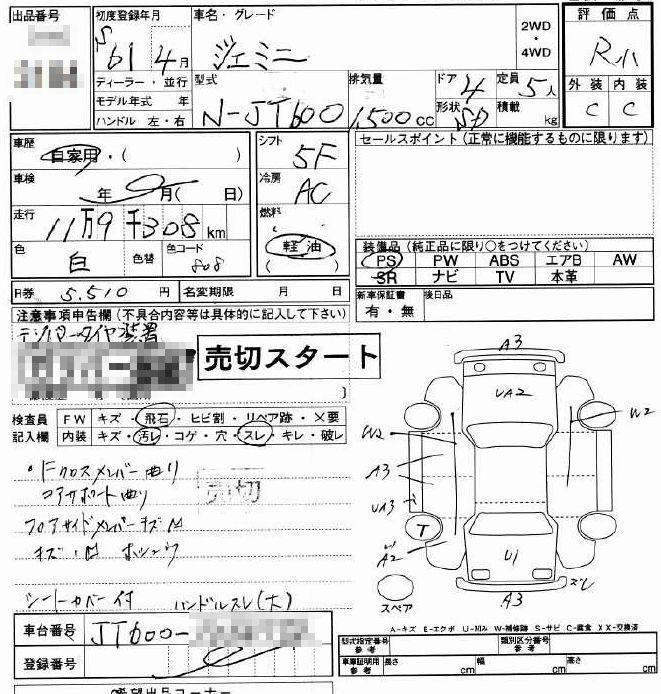 出品番号
初度登録年月
S 61 4 月
車名・グレード
ジェミニ
2WD
・
4WD
評価点
R小
ディーラー・並行
モデル年式 年
ハンドル 左・右
型式
N-JT600
排気量
1,500 cc
ドア 4
形状 SD
定員 5 人
積載 kg
外装 内装
C C
車歴
自家用・( )
車検
年 月( 日)
走行
11万9千308 km
色
白
色替
色コード
808
シフト
5F
冷房
AC
燃料
( )
軽油
セールスポイント(正常に機能するものに限ります)
装備品(純正品に限り○をつけてください)
PS PW ABS エアB AW
SR ナビ TV 本革
R券 5,510 円
名変期限 月 日
新車保証書
有・無
後日品
注意事項申告欄(不具合内容等は具体的に記入して下さい)
テンパータイヤ装着
売切スタート
検査員
記入欄
FW キズ・飛石・ヒビ割・リペア跡・×要
内装 キズ・汚レ・コゲ・穴・スレ・キレ・破レ
・Fクロスメンバー曲り
コアサポート曲り
売切
フロアサイドメンバーキズM
シートカバー付 ハンドルスレ(大)
A3
UA2
W2
W2
A3
UA3
T
A2
U1
A3
スペア
A-キズ E-エクボ U-凹み W-補修跡 S-サビ C-腐食 XX-交換済
車台番号 JT600-
登録番号
型式指定番号
参考
類別区分番号
参考
車庫証明用
参考
長さ cm 幅 cm 高さ cm
希望出品コーナー